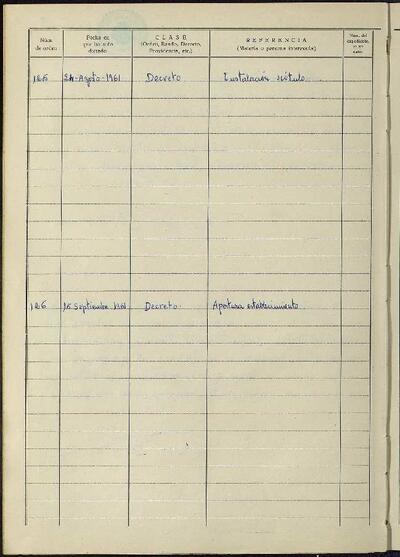 Núm. de orden
Fecha en que ha sido dictado
CLASE
(Orden, Bando, Decreto, Providencia, etc.)
REFERENCIA
(Materia o persona interesada)
Núm. del expediente,
125 24-Agosto-1961 Decreto Instalación rótulo
126 Septiembre Decreto Apertura establecimiento